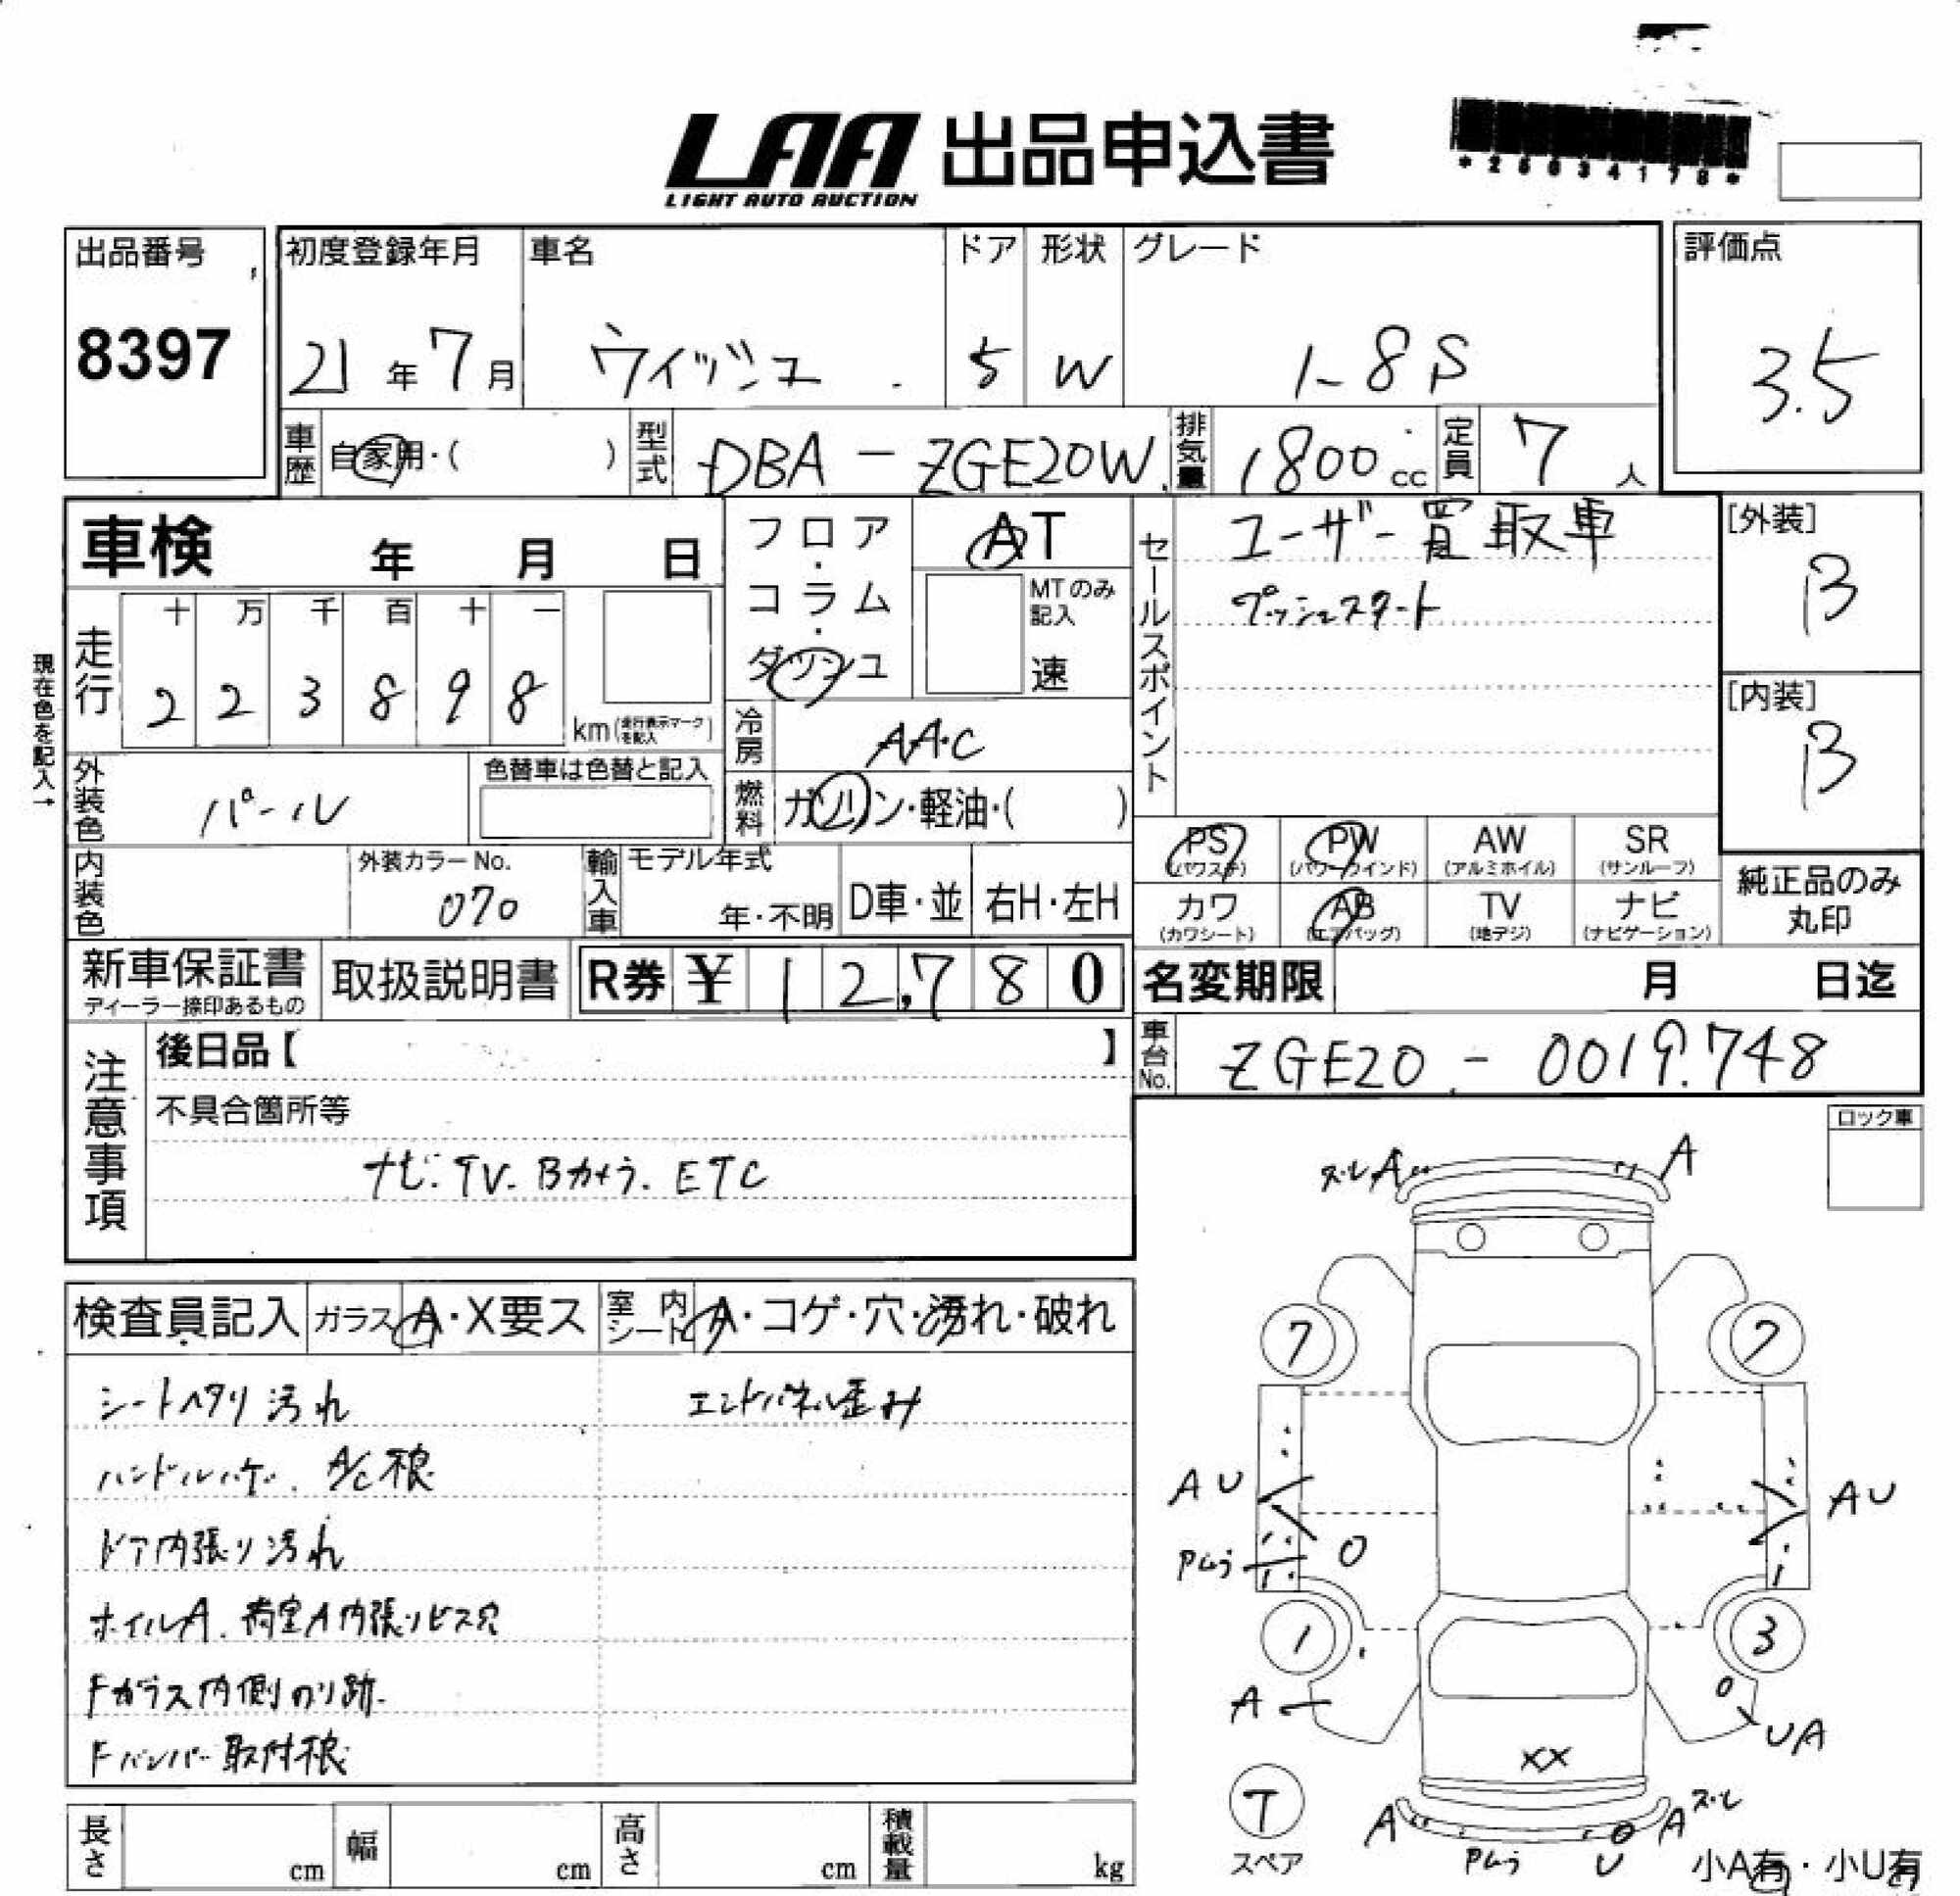 LAA 出品申込書
LIGHT AUTO AUCTION
*26034178*
出品番号
8397
初度登録年月
21年7月
車名
ウイッシュ
ドア
5
形状
W
グレード
1-8S
評価点
3.5
車歴
自家用・( )
型式
DBA-ZGE20W
排気量
1800cc
定員
7人
車検 年 月 日
フロア・コラム・ダッシュ
AT
MTのみ記入
速
セールスポイント
ユーザー買取車
プッシュスタート
[外装]
B
[内装]
B
現在色を記入→
走行
十 万 千 百 十 一
2 2 3 8 9 8
km(走行表示マークを記入)
冷房
AAC
燃料
ガソリン・軽油・( )
外装色
パール
色替車は色替と記入
内装色
外装カラーNo.
070
輸入車
モデル年式
年・不明
D車・並
右H・左H
PS
(パワステ)
PW
(パワーウインド)
AW
(アルミホイル)
SR
(サンルーフ)
カワ
(カワシート)
AB
(エアバッグ)
TV
(地デジ)
ナビ
(ナビゲーション)
純正品のみ
丸印
新車保証書
ディーラー捺印あるもの
取扱説明書
R券 ¥12,780
名変期限 月 日迄
車台No.
ZGE20-0019748
注意事項
後日品【 】
不具合箇所等
ナビ.TV.Bカメラ.ETC
ロック車
検査員記入
ガラス A・X要ス
室内シート A・コゲ・穴・汚れ・破れ
シートヘタリ汚れ
エンドパネル歪み
ハンドルハゲ. A/C根
ドア内張り汚れ
ホイルA. 荷室A内張りビス穴
Fガラス内側のり跡
Fバンパー取付根
ズレA
A
7
7
AU
AU
Pムラ
O
1
3
A
O
UA
XX
T
スペア
A
Aズレ
Pムラ
U
小A有・小U有
長さ cm
幅 cm
高さ cm
積載量 kg